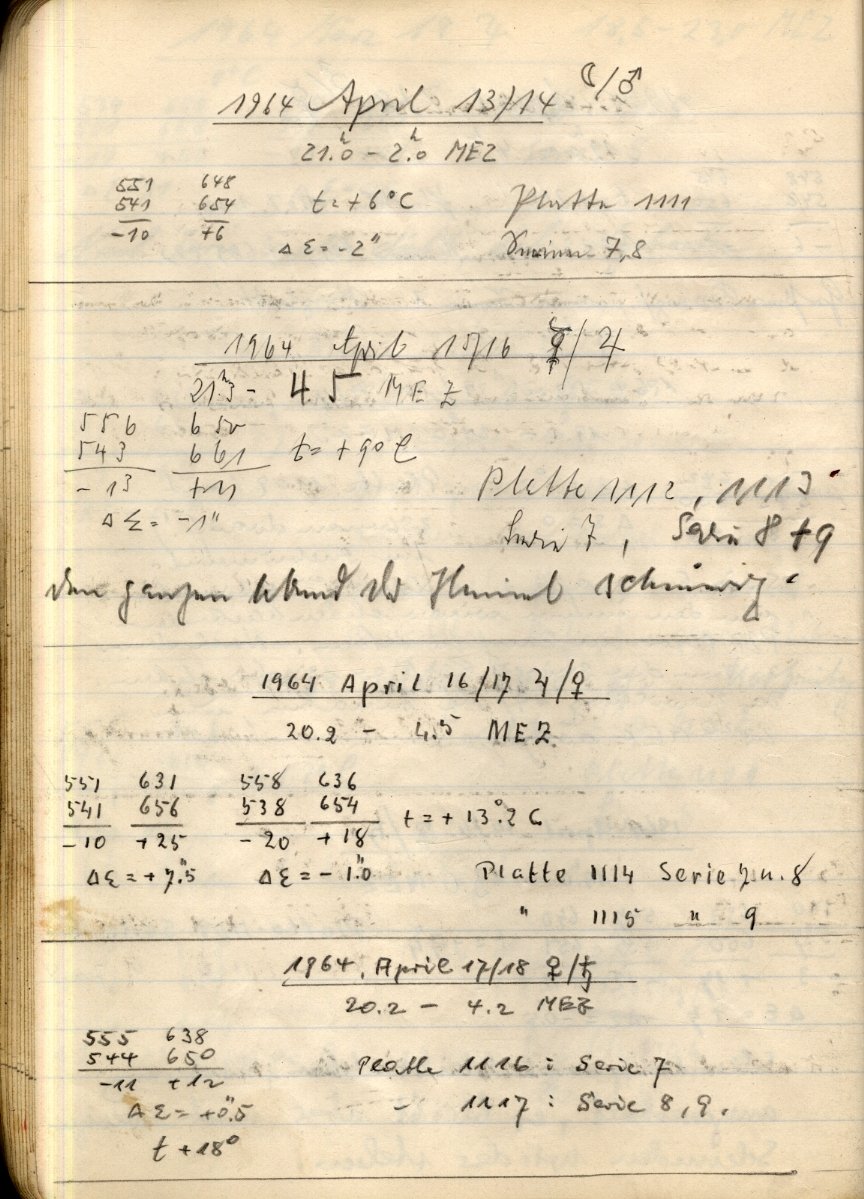 1964 April 13/14 ☾/♂
21.ʰ0 – 2.ʰ0 MEZ
551 648
541 654 t = +6°C Platte 1111
-10 +6
Δε = -2" Serien 7,8
1964 April 15/16 ☿/♃
21.ʰ3 – 4.5 MEZ
556 650
543 661 t = +9°C
-13 +11 Platte 1112, 1113
Δε = -1" Serie 7, Serie 8+9
den ganzen Abend der Himmel schmierig.
1964 April 16/17 ♃/♀
20.2 – 4.5 MEZ
551 631 558 636
541 656 538 654 t = +13.°2 C
-10 +25 -20 +18
Δε = +7."5 Δε = -1."0 Platte 1114 Serie 7 u. 8
" 1115 " 9
1964, April 17/18 ♀/♄
20.2 – 4.2 MEZ
555 638
544 650 Platte 1116: Serie 7
-11 +12
– 1117: Serie 8, 9.
Δε = +0."5
t +18°